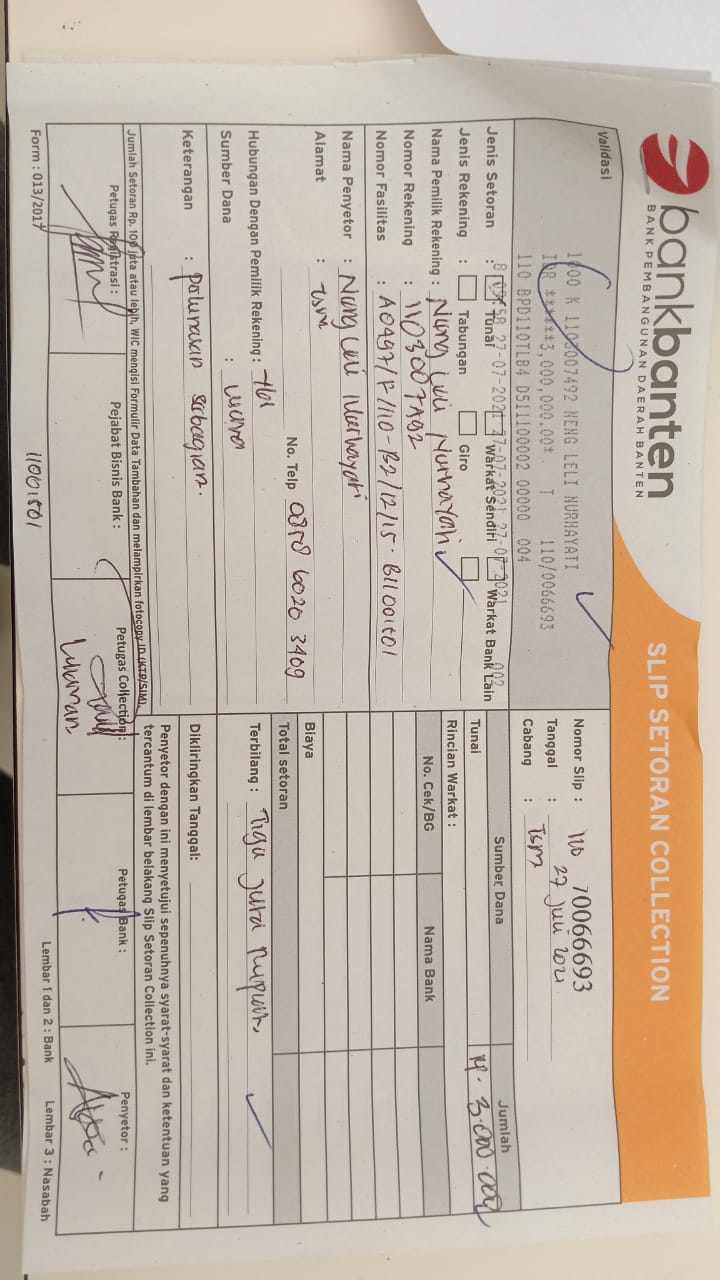 bankbanten
BANK PEMBANGUNAN DAERAH BANTEN
SLIP SETORAN COLLECTION
Validasi
1000 K 1103007492 NENG LELI NURHAYATI
IDR ******3,000,000.00* T 110/0066693
110 BPD110TLB4 D511100002 00000 004
27-07-2021 27-07-2021 27-07-2021 002
Nomor Slip : 110 70066693
Tanggal : 27 Juli 2021
Cabang : Tsm
Jenis Setoran : Tunai Warkat Sendiri Warkat Bank Lain
Jenis Rekening : Tabungan Giro
Nama Pemilik Rekening : Neng Leli Nurhayati
Nomor Rekening : 1103007492
Nomor Fasilitas : A0497/P/110-B2/12/15. B11001501
Nama Penyetor : Neng Leli Nurhayati
Alamat : Tsm
No. Telp 0858 6020 3409
Hubungan Dengan Pemilik Rekening :
Sumber Dana :
Keterangan : pelunasan sebagian.
Sumber Dana Jumlah
Tunai 3.000.000
Rincian Warkat :
No. Cek/BG Nama Bank
Biaya
Total setoran
Terbilang : Tiga Juta Rupiah
Dikliringkan Tanggal:
Jumlah Setoran Rp. 100 juta atau lebih, WIC mengisi Formulir Data Tambahan dan melampirkan fotocopy ID (KTP/SIM).
Penyetor dengan ini menyetujui sepenuhnya syarat-syarat dan ketentuan yang
tercantum di lembar belakang Slip Setoran Collection ini.
Petugas Registrasi : Pejabat Bisnis Bank : Petugas Collection : Petugas Bank : Penyetor :
Lukman
Form : 013/2017
11001501
Lembar 1 dan 2 : Bank Lembar 3 : Nasabah